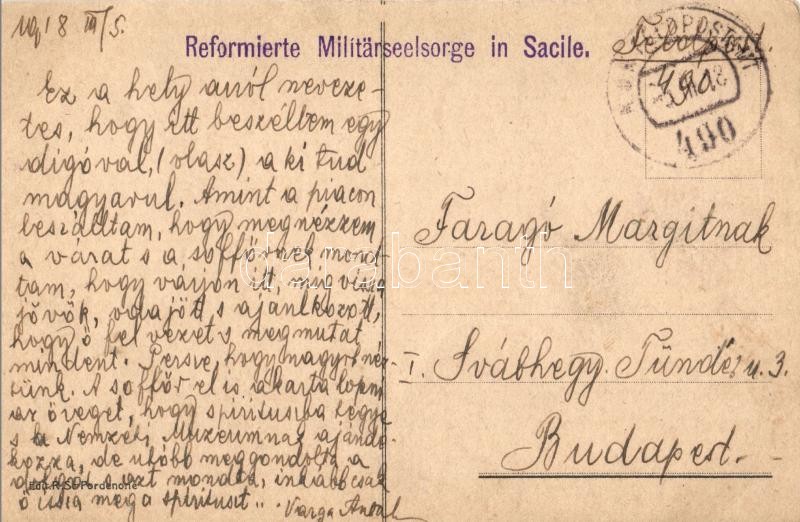 1918 III/5.
Reformierte Militärseelsorge in Sacile.
Feldpost.
490
Ez a hely arról neveze-
tes, hogy itt beszéltem egy
digóval, (olasz) a ki tud
magyarul. Amint a piacon
beszálltam, hogy megnézzem
a várat s a sofförnek mond-
tam, hogy várjon itt, míg vissza
jövök, oda jött s ajánlkozott,
hogy ő fel vezet s megmutat
mindent. Persze, hogy nagyot néz-
tünk. A sofför el is akarta lopni
az üveget, hogy spiritusba tegye
s a Nemzeti Muzeumnak ajándé-
kozza, de utóbb meggondolta a
dolgot s azt mondta, inkább csak
ő issza meg a spirituszt..
Varga Antal
Edit. R. S. Pordenone
Faragó Margitnak
I. Svábhegy. Tünder u. 3.
Budapest.
darabanth